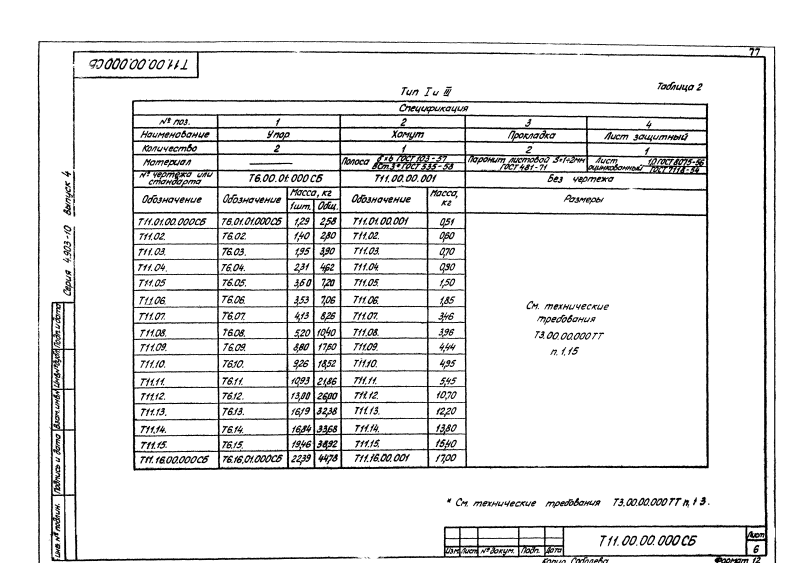 77
Т11.00.00.000СБ
Таблица 2
Тип I и III
Спецификация
№ поз. 1 2 3 4
Наименование Упор Хомут Прокладка Лист защитный
Количество 2 1 2 1
Материал —— Полоса 8×6 ГОСТ 103-57 / ВСт.3* ГОСТ 535-58 Паронит листовой S=1÷2мм ГОСТ 481-71 Лист оцинкованный 1,0 ГОСТ 8075-56 / ГОСТ 7118-54
№ чертежа или стандарта Т6.00.01.000СБ Т11.00.00.001 Без чертежа
Обозначение Обозначение Масса, кг Обозначение Масса, кг Размеры
1шт. Общ.
Т11.01.00.000СБ Т6.01.01.000СБ 1,29 2,58 Т11.01.00.001 0,51
Т11.02. Т6.02. 1,40 2,80 Т11.02. 0,60
Т11.03. Т6.03. 1,95 3,90 Т11.03. 0,70
Т11.04. Т6.04. 2,31 4,62 Т11.04. 0,90
Т11.05. Т6.05. 3,60 7,20 Т11.05. 1,50
Т11.06. Т6.06. 3,53 7,06 Т11.06. 1,85
Т11.07. Т6.07. 4,13 8,26 Т11.07. 3,46
Т11.08. Т6.08. 5,20 10,40 Т11.08. 3,96
Т11.09. Т6.09. 8,80 17,60 Т11.09. 4,44
Т11.10. Т6.10. 9,26 18,52 Т11.10. 4,95
Т11.11. Т6.11. 10,93 21,86 Т11.11. 5,45
Т11.12. Т6.12. 13,00 26,00 Т11.12. 10,70
Т11.13. Т6.13. 16,19 32,38 Т11.13. 12,20
Т11.14. Т6.14. 16,84 33,68 Т11.14. 13,80
Т11.15. Т6.15. 19,46 38,92 Т11.15. 15,40
Т11.16.00.000СБ Т6.16.01.000СБ 22,39 44,78 Т11.16.00.001 17,00
См. технические
требования
Т3.00.00.000ТТ
п. 1.15
* См. технические требования Т3.00.00.000ТТ п. 1 3.
Серия 4.903-10 Выпуск 4
Инв № подлин. Подпись и дата Взам инв№ Инв№ дубл Подп. и дата
Изм. Лист № докум. Подп. Дата
Т11.00.00.000СБ
Лист
6
Копир. Соболева Формат 12